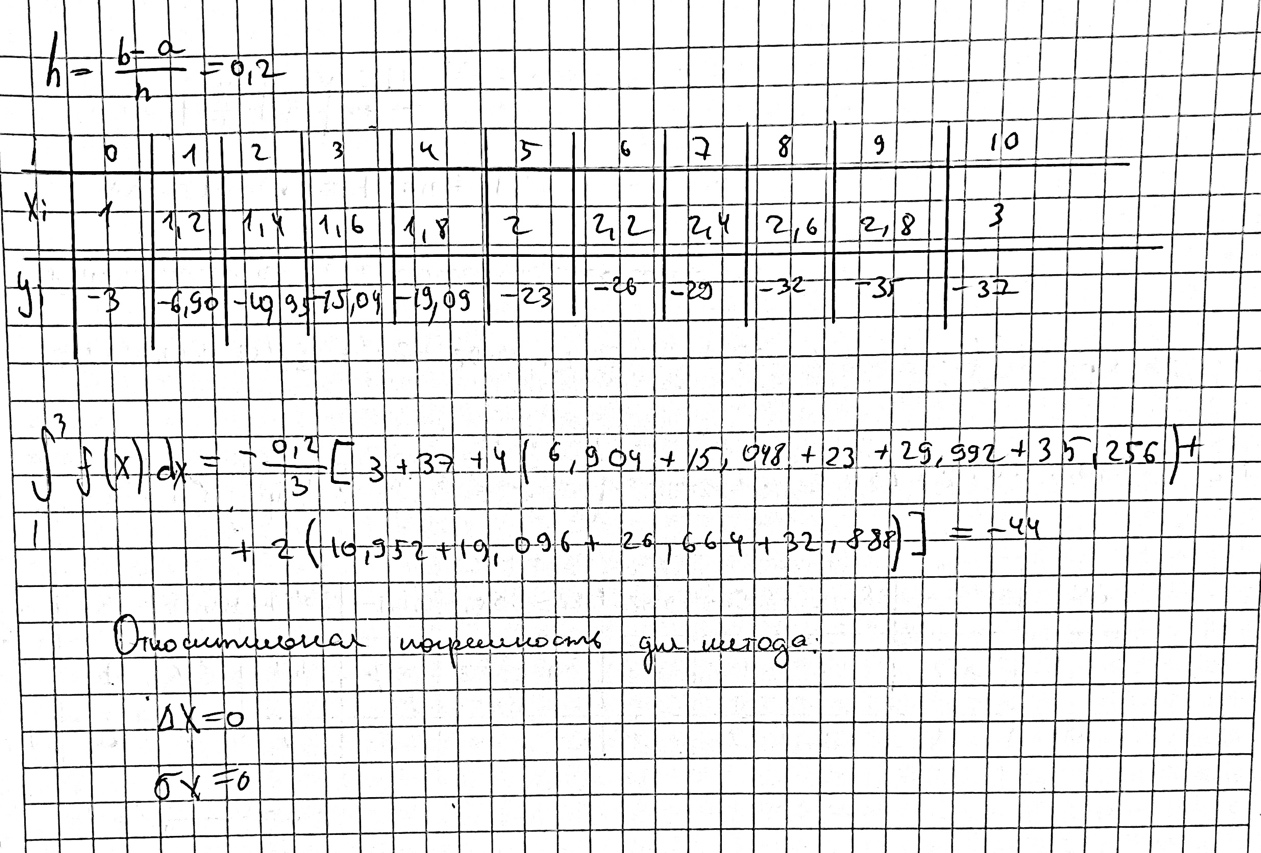 h = b-a / n = 0,2
i 0 1 2 3 4 5 6 7 8 9 10
xi 1 1,2 1,4 1,6 1,8 2 2,2 2,4 2,6 2,8 3
yi -3 -6,90 -10,95 -15,04 -19,09 -23 -26 -29 -32 -35 -37
∫₁³ f(x) dx = - 0,2/3 [ 3 + 37 + 4 ( 6,904 + 15,048 + 23 + 29,992 + 35,256 ) +
+ 2 ( 10,952 + 19,096 + 26,664 + 32,888 ) ] = -44
Относительная погрешность для метода:
Δx = 0
σx = 0